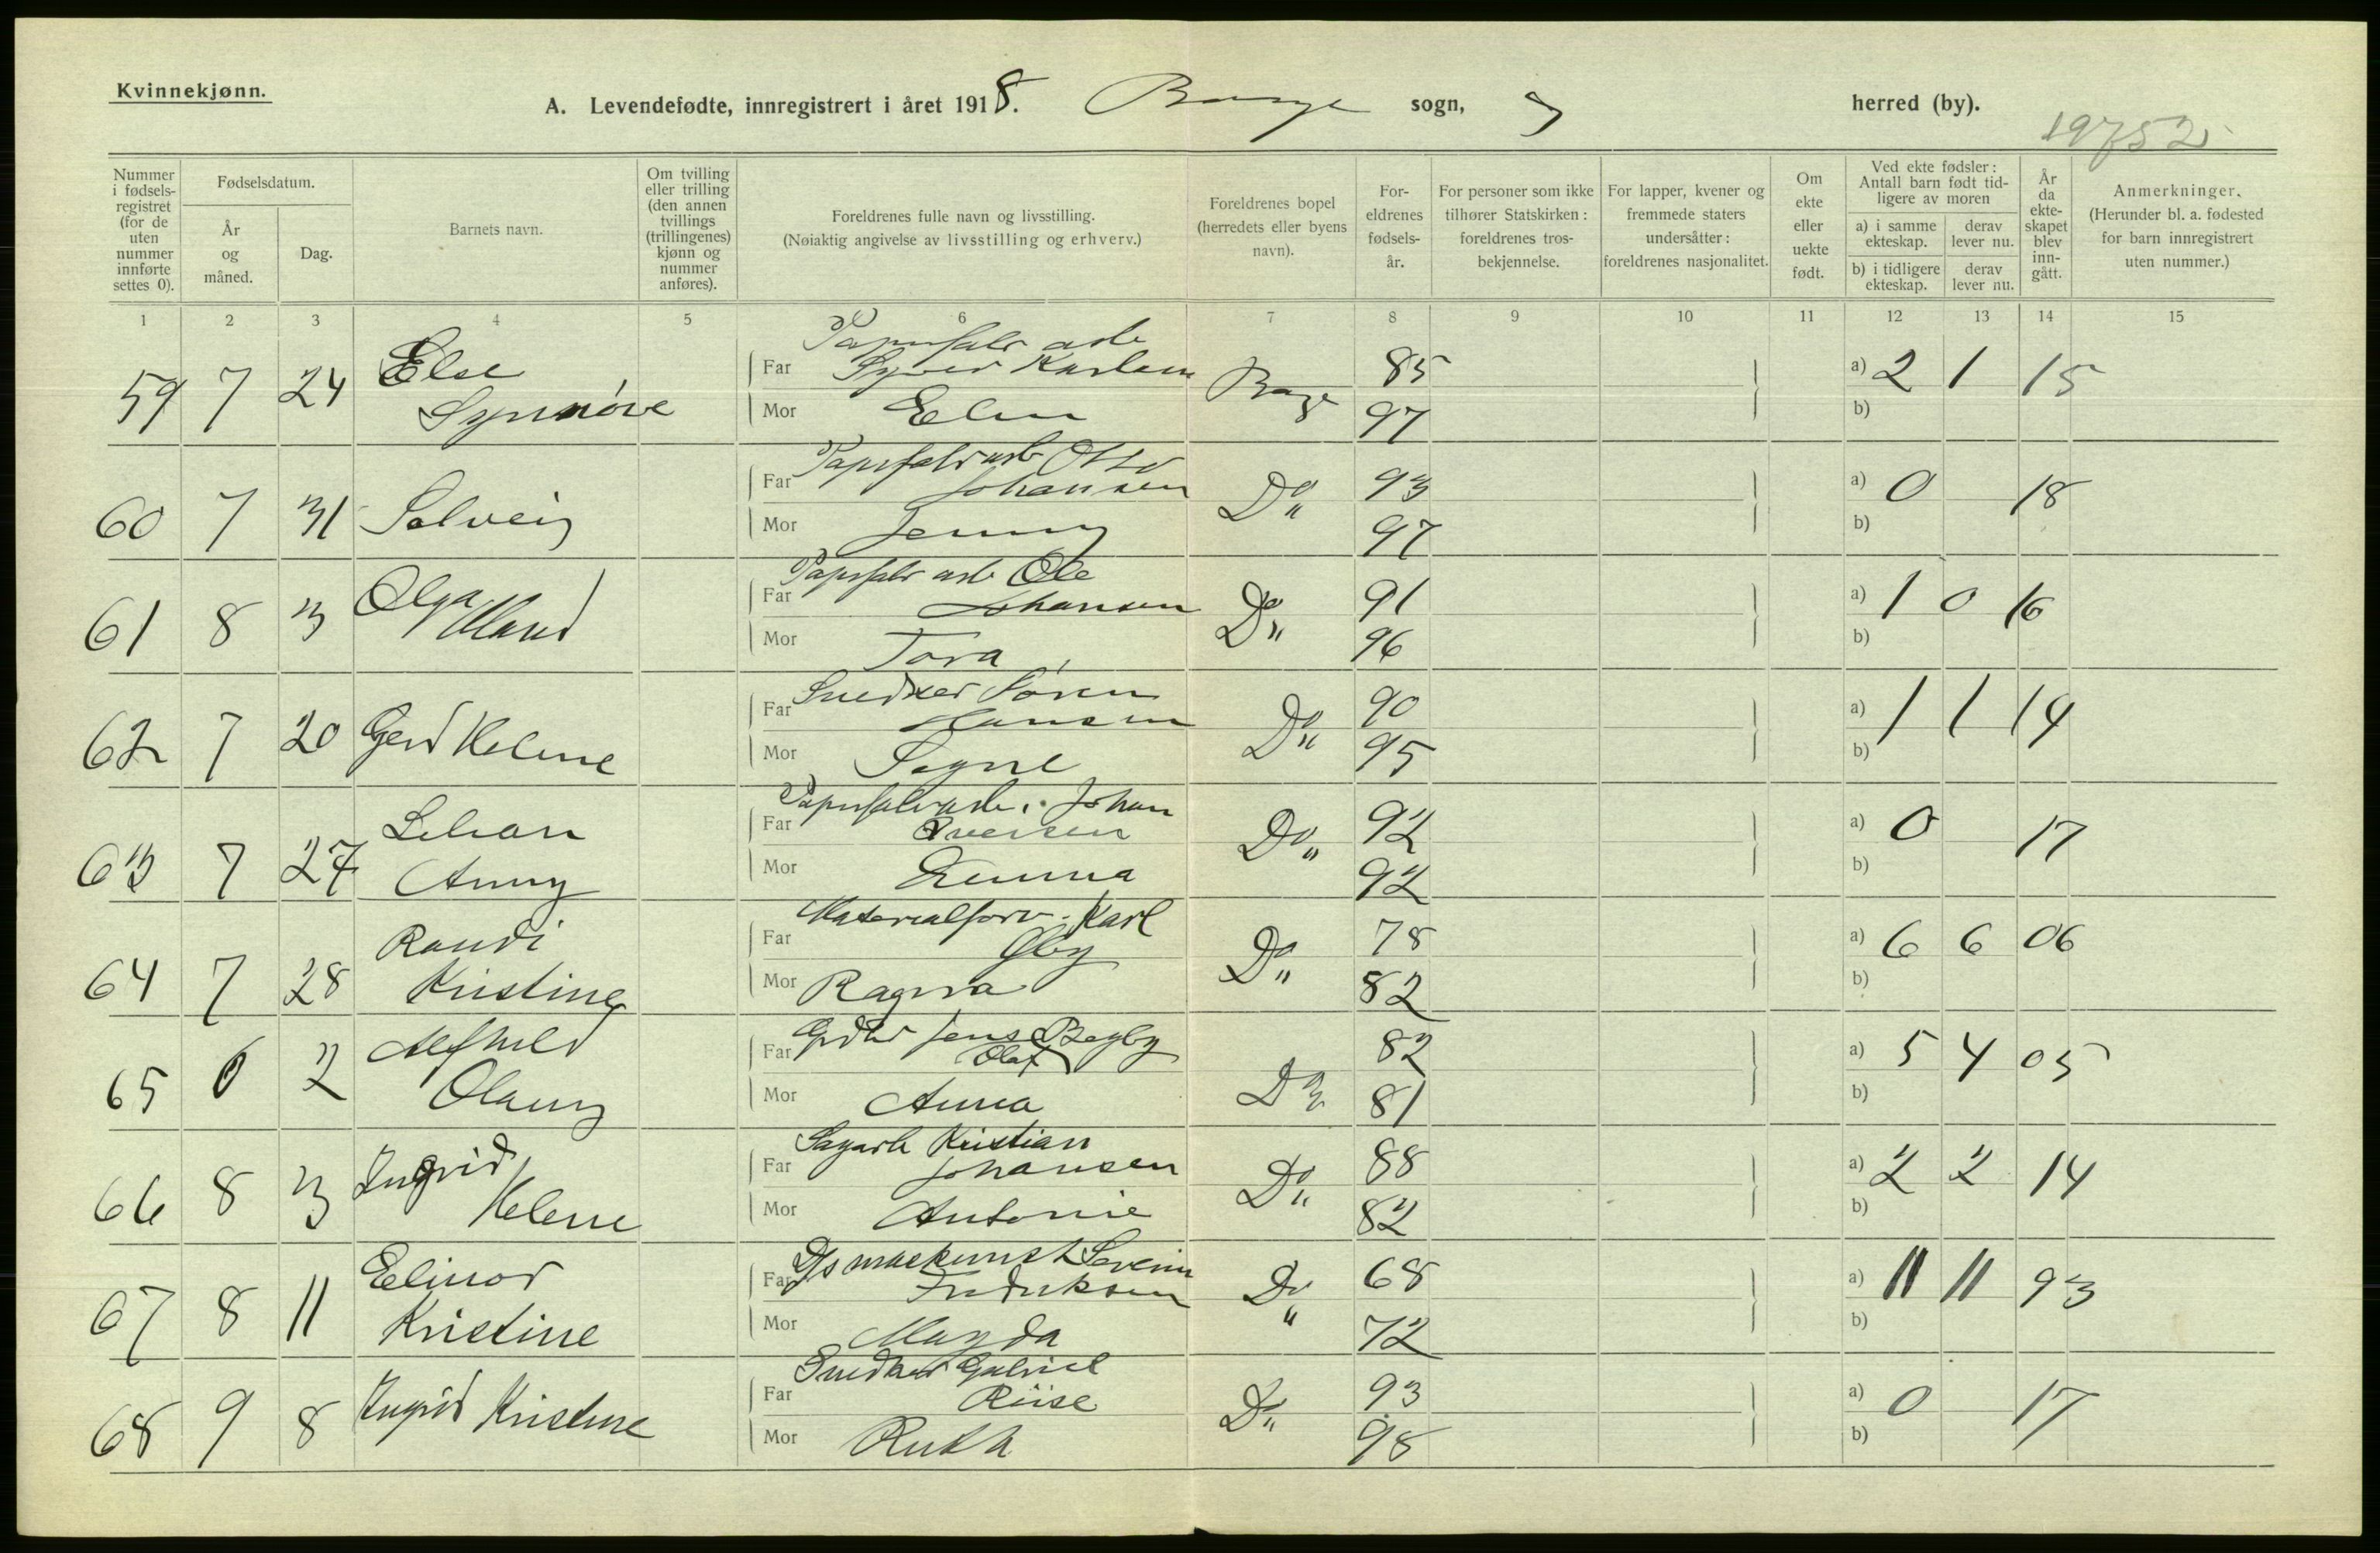 Kvinnekjønn.
A. Levendefødte, innregistrert i året 1918. Borge sogn, herred (by).
19752
Nummer i fødsels-registret (for de uten nummer innførte settes 0).
Fødselsdatum.
År og måned.
Dag.
Barnets navn.
Om tvilling eller trilling (den annen tvillings (trillingenes) kjønn og nummer anføres).
Foreldrenes fulle navn og livsstilling.
(Nøiaktig angivelse av livsstilling og erhverv.)
Foreldrenes bopel (herredets eller byens navn).
For-eldrenes fødsels-år.
For personer som ikke tilhører Statskirken: foreldrenes tros-bekjennelse.
For lapper, kvener og fremmede staters undersåtter: foreldrenes nasjonalitet.
Om ekte eller uekte født.
Ved ekte fødsler: Antall barn født tid-ligere av moren
a) i samme ekteskap.
derav lever nu.
b) i tidligere ekteskap.
derav lever nu.
År da ekte-skapet blev inn-gått.
Anmerkninger.
(Herunder bl. a. fødested for barn innregistrert uten nummer.)
1 2 3 4 5 6 7 8 9 10 11 12 13 14 15
59 7 24 Else Synnöve
Far Karlsen Borge 85 a) 2 1 15
Mor Elin 97 b)
60 7 31 Solveig
Far Papirfabr arb Otto Johansen Do 93 a) 0 18
Mor Jenny 97 b)
61 8 3 Olga Maud
Far Papirfabr arb Ole Johansen Do 91 a) 1 0 16
Mor Tora 96 b)
62 7 20 Gerd Helene
Far Snedker Sören Hansen Do 90 a) 1 1 14
Mor Signe 95 b)
63 7 27 Lilian Anny
Far Papirfabr arb. Johan Iversen Do 92 a) 0 17
Mor Emma 92 b)
64 7 28 Randi Kristine
Far Materialforv. Karl Öby Do 78 a) 6 6 06
Mor Ragna 82 b)
65 6 2 Alfhild Olaug
Far Jens Olaf Begby Do 82 a) 5 4 05
Mor Anna 81 b)
66 8 3 Ingrid Helene
Far Sagarb Kristian Johansen Do 88 a) 2 2 14
Mor Antonie 82 b)
67 8 11 Elinor Kristine
Far Severin Fredriksen Do 68 a) 11 11 93
Mor Magda 72 b)
68 9 8 Ingrid Kristine
Far Snedker Gabriel Riise Do 93 a) 0 17
Mor Ruth 98 b)